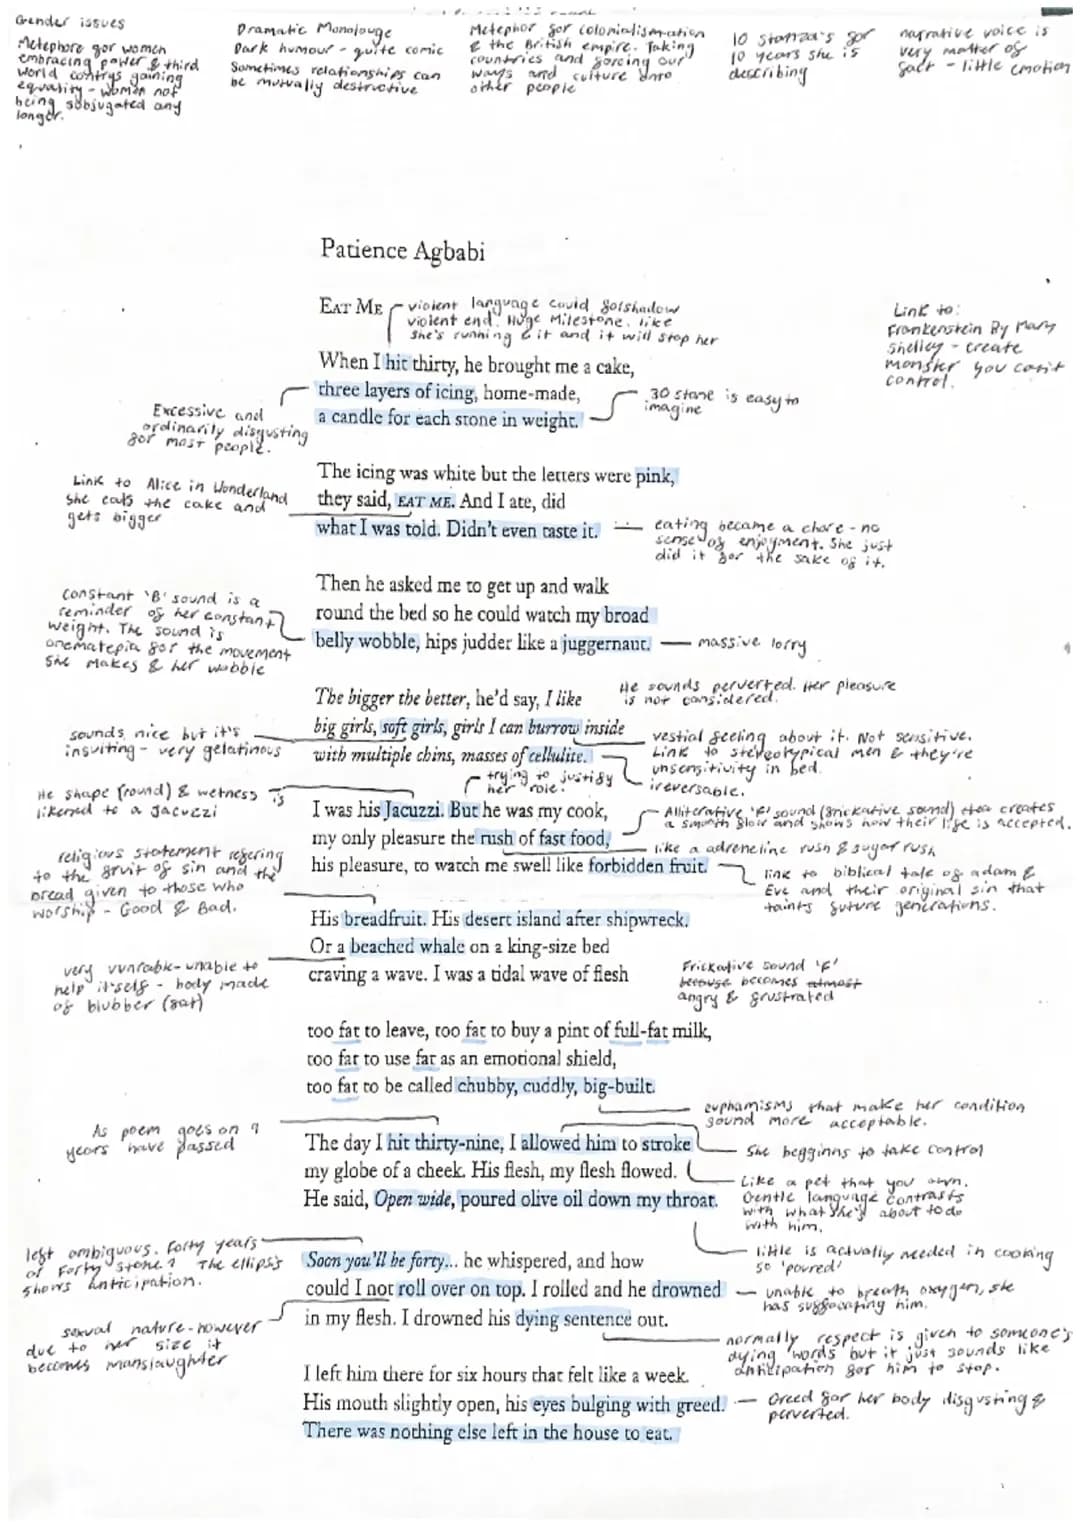 Gender issues
Metephore gor women
embracing power & third
world contrys gaining
equality - women not
being sobsjugated any
longer.
Dramatic Monolouge
Dark humour - quite comic
Sometimes relationships can
be mutually destructive
Metephor for colonialism
& the British empire. Taking
countries and forcing our
ways and culture onto
other people
10 stanza's for
10 years she is
describing
narrative voice is
very matter of
fact - little emotion
Patience Agbabi
EAT ME
violent language could forshadow
violent end. Huge Milestone. like
she's running & it and it will stop her
Link to:
Frankenstein By Mary
Shelley - create
monster you can't
control.
When I hit thirty, he brought me a cake,
three layers of icing, home-made,
a candle for each stone in weight.
30 stone is easy to
imagine
Excessive and
ordinarily disgusting
for most people.
The icing was white but the letters were pink,
they said, EAT ME. And I ate, did
what I was told. Didn't even taste it.
Link to Alice in Wonderland
she eats the cake and
gets bigger
eating became a chore - no
sense of enjoyment. She just
did it for the sake of it.
Then he asked me to get up and walk
round the bed so he could watch my broad
belly wobble, hips judder like a juggernaut.
constant 'B' sound is a
reminder of her constant
weight. The sound is
onematepia for the movement
she makes & her wobble
massive lorry
The bigger the better, he'd say, I like
big girls, soft girls, girls I can burrow inside
with multiple chins, masses of cellulite.
He sounds perverted. Her pleasure
is not considered.
sounds nice but it's
insulting - very gelatinous
vestial feeling about it. Not sensitive.
Link to stereotypical men & they're
unsensitivity in bed.
irreversable.
trying to justify
her role.
I was his Jacuzzi. But he was my cook,
my only pleasure the rush of fast food,
his pleasure, to watch me swell like forbidden fruit.
He shape (round) & wetness is
likened to a Jacuzzi
Alliterative 'F' sound (frickative sound) creates
a smooth flow and shows how their life is accepted.
like a adreneline rush & sugar rush
religious statement refering
to the fruit of sin and the
bread given to those who
worship - Good & Bad.
link to biblical tale of adam &
Eve and their original sin that
taints future generations.
His breadfruit. His desert island after shipwreck.
Or a beached whale on a king-size bed
craving a wave. I was a tidal wave of flesh
very vunrable - unable to
help itself - body made
of blubber (fat)
Frickative sound 'F'
becomes
angry & frustrated
too fat to leave, too fat to buy a pint of full-fat milk,
too fat to use fat as an emotional shield,
too fat to be called chubby, cuddly, big-built.
euphamisms that make her condition
sound more acceptable.
The day I hit thirty-nine, I allowed him to stroke
my globe of a cheek. His flesh, my flesh flowed.
He said, Open wide, poured olive oil down my throat.
As poem goes on 9
years have passed
She begginns to take control
Like a pet that you own.
Gentle language contrasts
with what she's about to do
with him.
little is actually needed in cooking
so 'poured'
Soon you'll be forty... he whispered, and how
could I not roll over on top. I rolled and he drowned
in my flesh. I drowned his dying sentence out.
left ambiguous. Forty years
or Forty stone? The ellipsis
shows anticipation.
unable to breath oxygen, she
has suffocating him.
sexual nature - however
due to her size it
becomes manslaughter
normally respect is given to someone's
dying words but it just sounds like
anticipation for him to stop.
I left him there for six hours that felt like a week.
His mouth slightly open, his eyes bulging with greed.
There was nothing else left in the house to eat.
Greed for her body disgusting &
perverted.